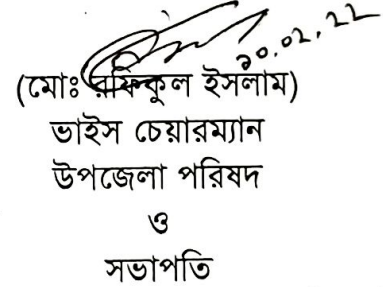 ১০.০২.২২
(মোঃ রফিকুল ইসলাম)
ভাইস চেয়ারম্যান
উপজেলা পরিষদ
ও
সভাপতি